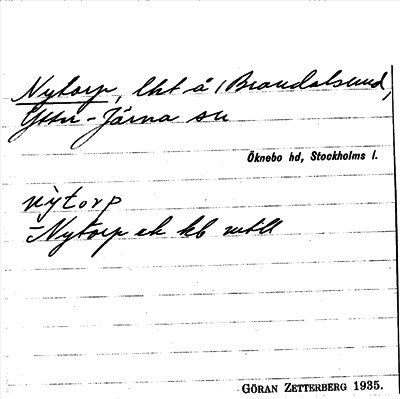 Nytorp, lht å Brandalsund,
Ytter-Järna sn
Öknebo hd, Stockholms l.
nỳtorp
Nytorp ek kb
GÖRAN ZETTERBERG 1935.